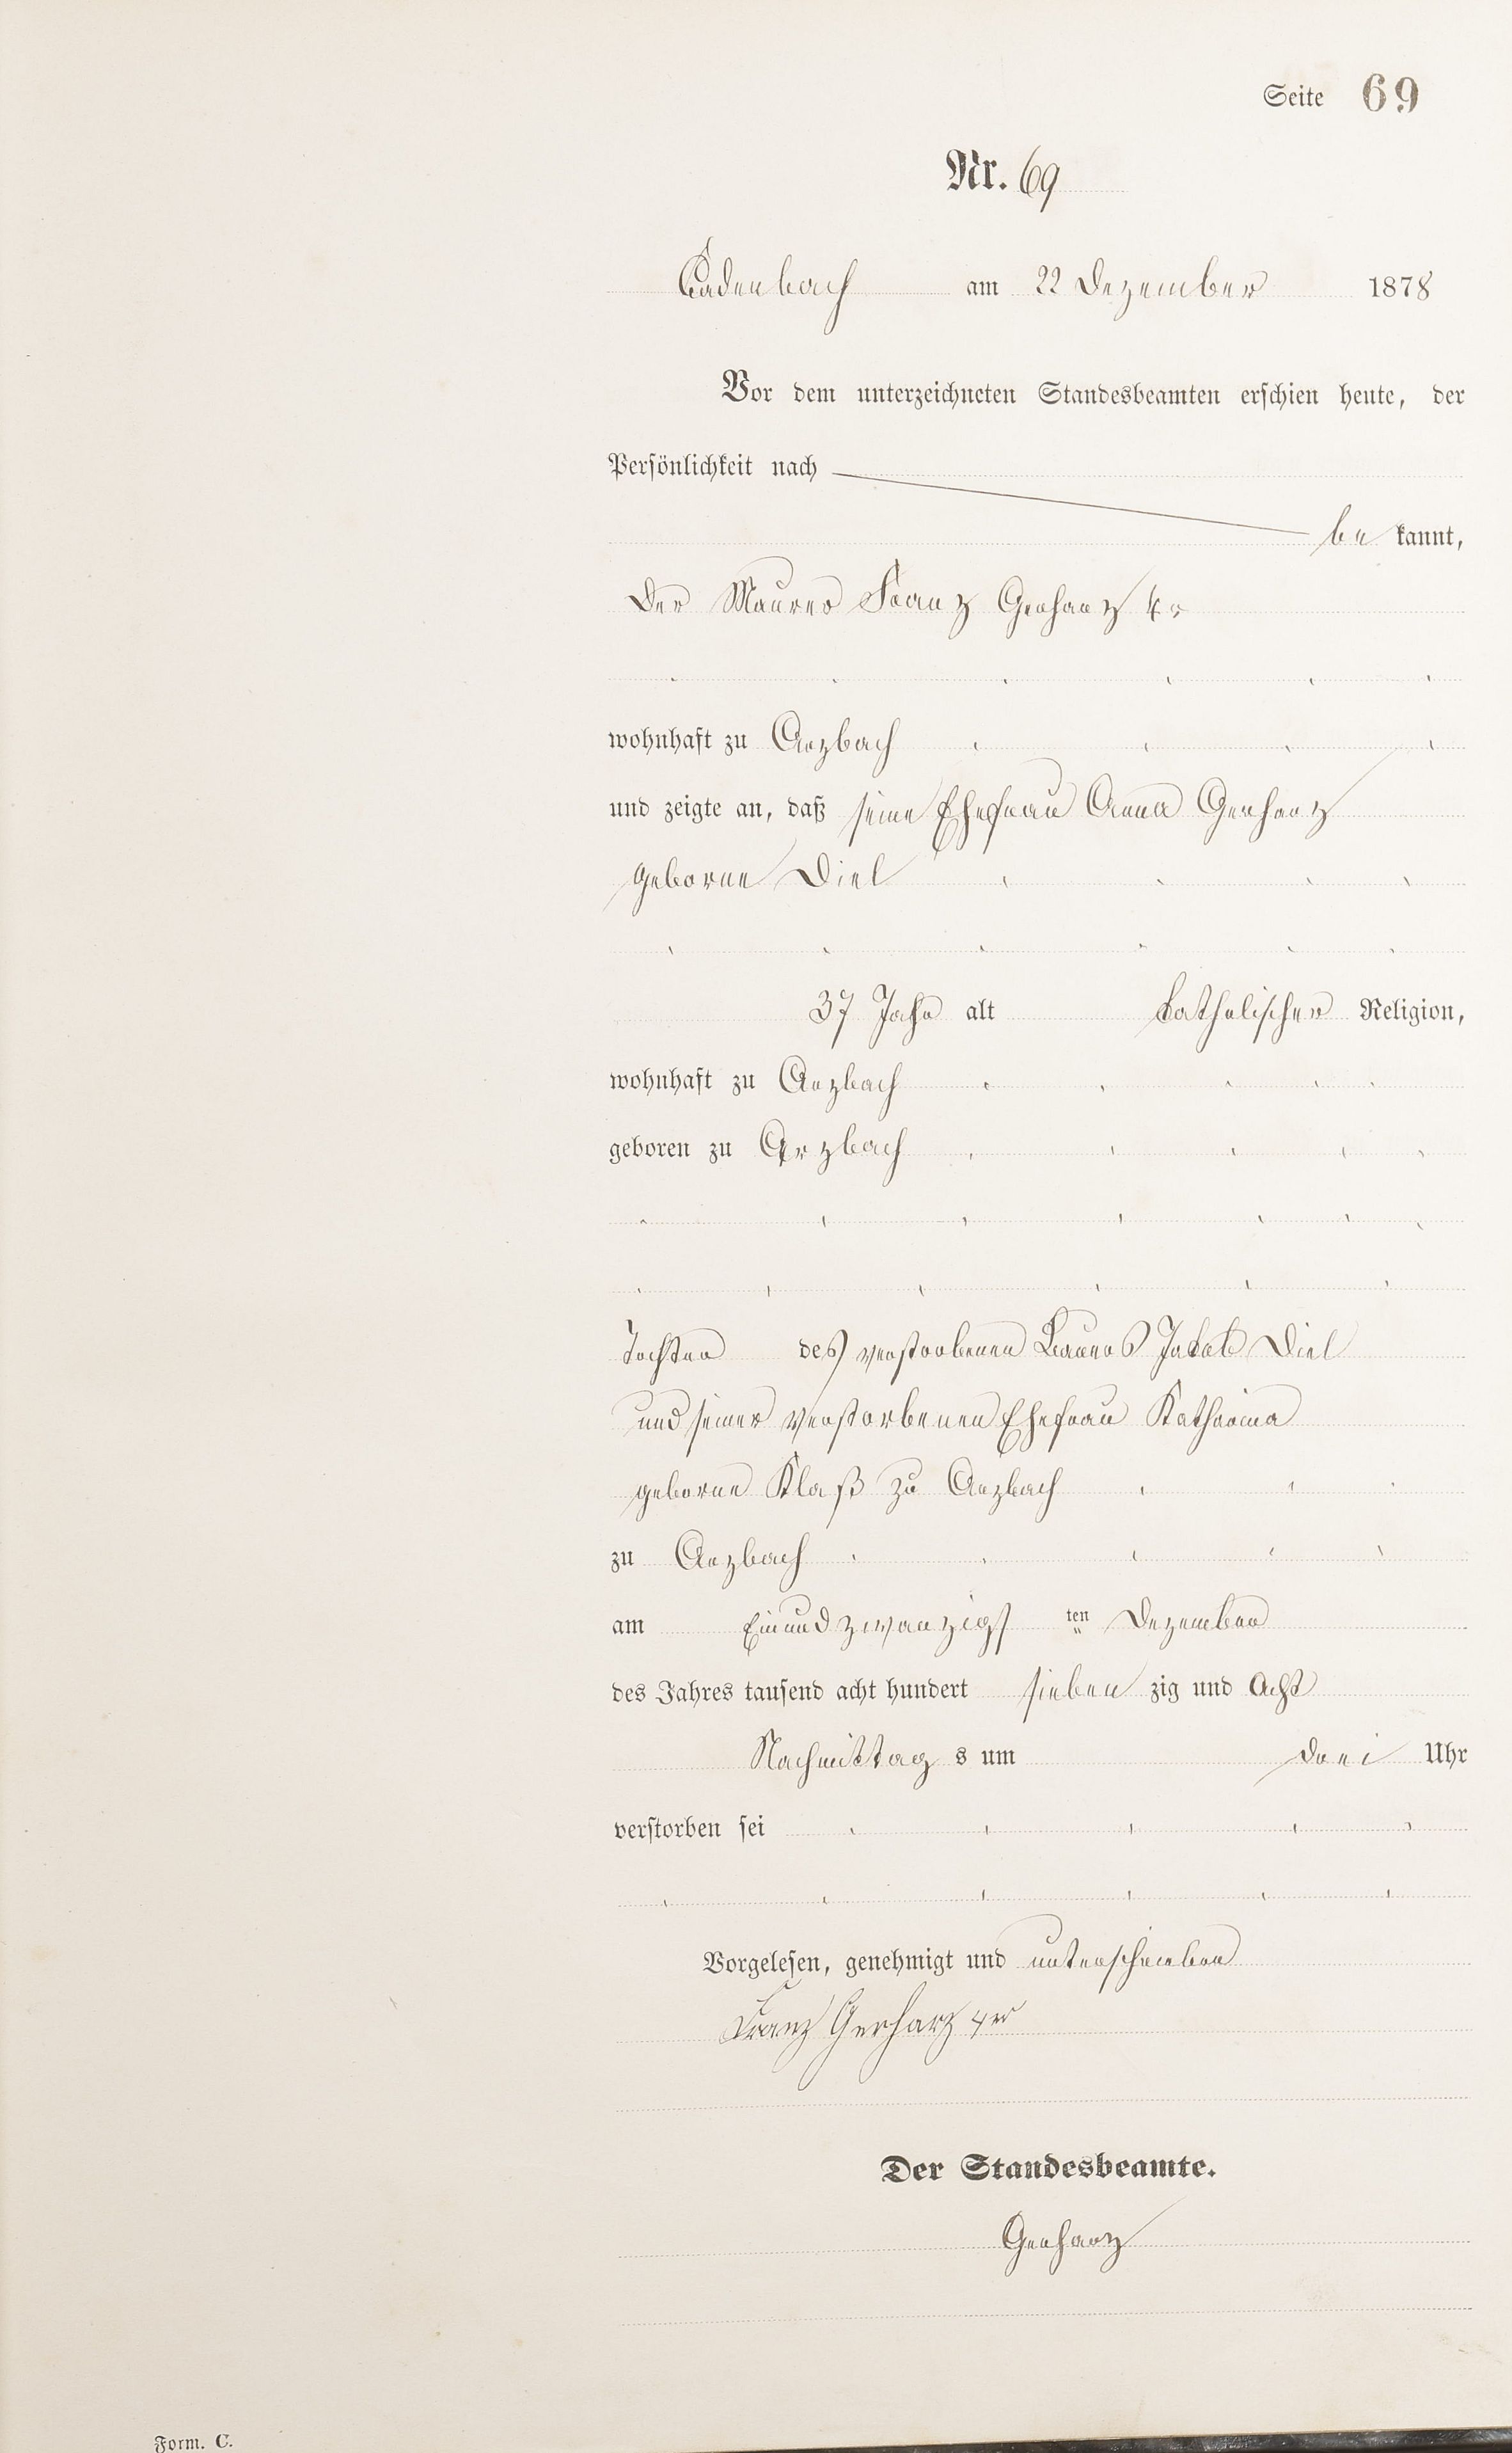 Seite 69
Nr. 69
Cadenbach am 22 Dezember 1878
Vor dem unterzeichneten Standesbeamten erschien heute, der
Persönlichkeit nach
be kannt,
Der Maurer Franz Gerharz 4r
wohnhaft zu Arzbach
und zeigte an, daß seine Ehefrau Anna Gerharz
geborne Diel
37 Jahr alt katholischer Religion,
wohnhaft zu Arzbach
geboren zu Arzbach
Tochter des verstorbenen Bauers Jakob Diel
und seiner verstorbenen Ehefrau Katharina
geborne Klaß zu Arzbach
zu Arzbach
am Einundzwanzigsten Dezember
des Jahres tausend acht hundert sieben zig und Acht
Nachmittag s um drei Uhr
verstorben sei
Vorgelesen, genehmigt und unterschrieben
Franz Gerharz 4er
Der Standesbeamte.
Gerharz
Form. C.